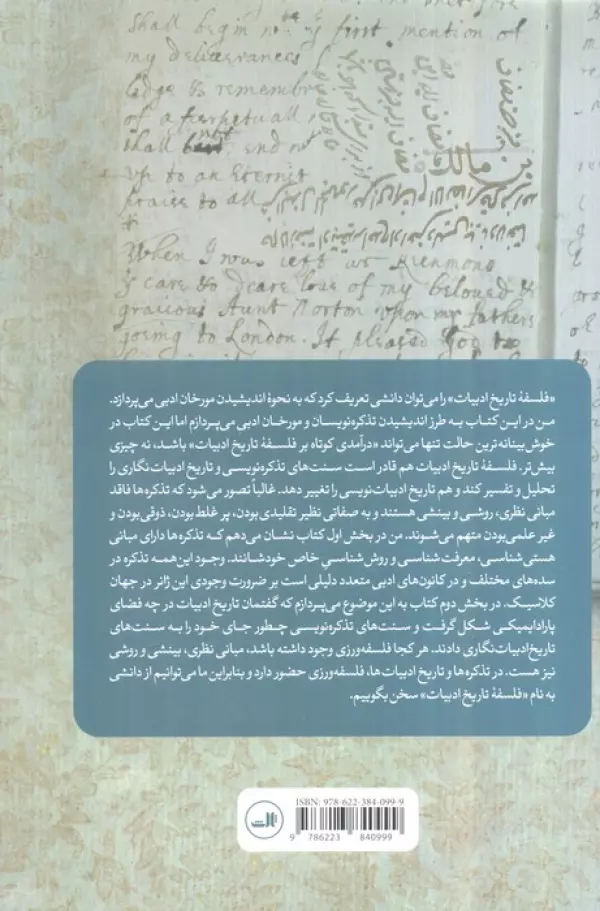 shall begin wth ye first mention of
my deliverances
ledge & remembr
of a perpetuall
shall end
up to an Eternit
praise to all
When I was left at Richmond
ye care & deare love of my beloved &
gracious Aunt Norton upon my fathers
going to London. It pleased God to
«فلسفهٔ تاریخ ادبیات» را می‌توان دانشی تعریف کرد که به نحوهٔ اندیشیدن مورخان ادبی می‌پردازد.
من در این کتاب به طرز اندیشیدن تذکره‌نویسان و مورخان ادبی می‌پردازم اما این کتاب در
خوش‌بینانه‌ترین حالت تنها می‌تواند «درآمدی کوتاه بر فلسفهٔ تاریخ ادبیات» باشد، نه چیزی
بیش‌تر. فلسفهٔ تاریخ ادبیات هم قادر است سنت‌های تذکره‌نویسی و تاریخ ادبیات‌نگاری را
تحلیل و تفسیر کند و هم تاریخ ادبیات‌نویسی را تغییر دهد. غالباً تصور می‌شود که تذکره‌ها فاقد
مبانی نظری، روشی و بینشی هستند و به صفاتی نظیر تقلیدی بودن، پر غلط بودن، ذوقی بودن و
غیر علمی بودن متهم می‌شوند. من در بخش اول کتاب نشان می‌دهم که تذکره‌ها دارای مبانی
هستی‌شناسی، معرفت‌شناسی و روش‌شناسیِ خاص خودشانند. وجود این‌همه تذکره در
سده‌های مختلف و در کانون‌های ادبی متعدد دلیلی است بر ضرورت وجودی این ژانر در جهان
کلاسیک. در بخش دوم کتاب به این موضوع می‌پردازم که گفتمان تاریخ ادبیات در چه فضای
پارادایمیکی شکل گرفت و سنت‌های تذکره‌نویسی چطور جای خود را به سنت‌های
تاریخ ادبیات‌نگاری دادند. هر کجا فلسفه‌ورزی وجود داشته باشد، مبانی نظری، بینشی و روشی
نیز هست. در تذکره‌ها و تاریخ ادبیات‌ها، فلسفه‌ورزی حضور دارد و بنابراین ما می‌توانیم از دانشی
به نام «فلسفهٔ تاریخ ادبیات» سخن بگوییم.
ISBN: 978-622-384-099-9
9 786223 840999